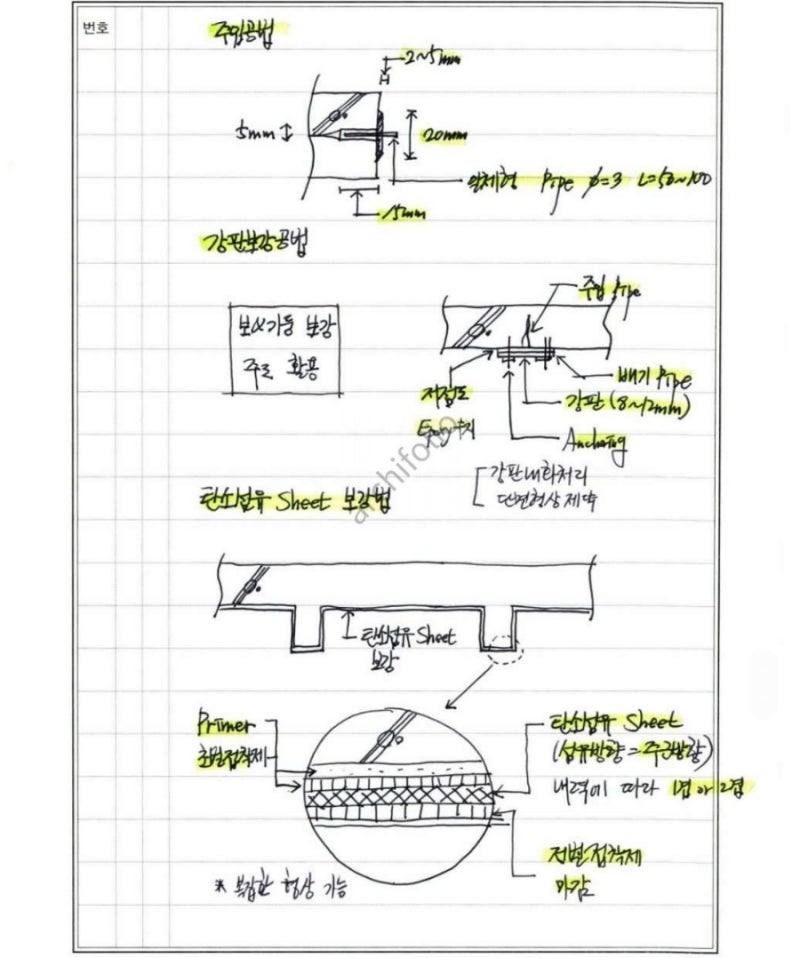 번호
주입공법
2~5mm
5mm
20mm
Pipe φ=3 L=50~100
15mm
강판보강공법
보&기둥 보강
주로 활용
주입 Pipe
배기 Pipe
저점도
강판 (8~12mm)
Anchoring
강판내화처리
단면형상 제약
탄소섬유 Sheet 보강법
archifotto
탄소섬유 Sheet
보강
Primer
초벌접착제
탄소섬유 Sheet
(섬유방향=주근방향)
내력에 따라 1겹 or 2겹
정벌접착제
마감
* 복잡한 형상 가능